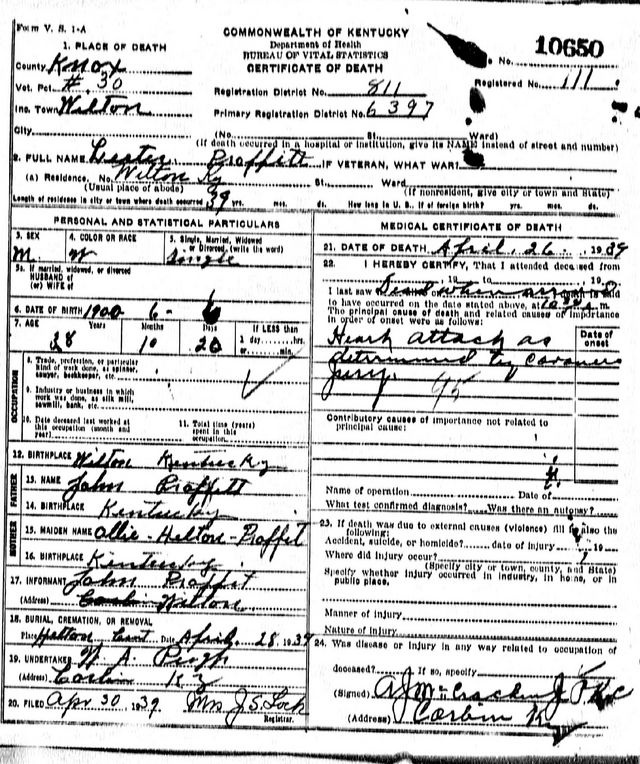 Form V. S. 1-A
COMMONWEALTH OF KENTUCKY
Department of Health
BUREAU OF VITAL STATISTICS
CERTIFICATE OF DEATH
No. 10650
Registered No. 111
1. PLACE OF DEATH
County Knox
Vot. Pct. # 30
Inc. Town Wilton
City
Registration District No. 811
Primary Registration District No. 6397
(No. St. Ward)
(If death occurred in a hospital or institution, give its NAME instead of street and number)
2. FULL NAME Lester Proffitt IF VETERAN, WHAT WAR
(a) Residence. No. Wilton Ky St. Ward
(Usual place of abode) (If nonresident, give city or town and State)
Length of residence in city or town where death occurred 39 yrs. mos. ds. How long in U. S., if of foreign birth? yrs. mos. ds.
PERSONAL AND STATISTICAL PARTICULARS
3. SEX
M.
4. COLOR OR RACE
W
5. Single, Married, Widowed
or Divorced. (write the word)
Single
5a. If married, widowed, or divorced
HUSBAND of
(or) WIFE of
6. DATE OF BIRTH 1900 6- 6
7. AGE Years Months Days If LESS than
38 10 20 1 day, hrs.
or min.
OCCUPATION
8. Trade, profession, or particular
kind of work done, as spinner,
sawyer, bookkeeper, etc.
9. Industry or business in which
work was done, as silk mill,
sawmill, bank, etc.
10. Date deceased last worked at
this occupation (month and
year)
11. Total time (years)
spent in this
occupation.
12. BIRTHPLACE Wilton Kentucky
FATHER
13. NAME John Proffitt
14. BIRTHPLACE Kentucky
MOTHER
15. MAIDEN NAME Allie-Helton-Proffit
16. BIRTHPLACE Kentucky
17. INFORMANT John Proffit
(Address) Corbin Wilton
18. BURIAL, CREMATION, OR REMOVAL
Place Date April 28 1939
19. UNDERTAKER W A Pugh
(Address) Corbin Ky
20. FILED Apr 30 1939. Mrs J. S. Lock
Registrar.
MEDICAL CERTIFICATE OF DEATH
21. DATE OF DEATH April, 26 1939
22. I HEREBY CERTIFY, That I attended deceased from
19 to 19
I last saw Dead when arrived
to have occurred on the date stated above, at m.
The principal cause of death and related causes of importance
in order of onset were as follows:
Date of
onset
Heart attack as
determined by Coroners
Jury. 95
Contributory causes of importance not related to
principal cause:
Name of operation Date of
What test confirmed diagnosis? Was there an autopsy?
23. If death was due to external causes (violence) fill in also the
following:
Accident, suicide, or homicide? date of injury 19
Where did injury occur?
(Specify city or town, county, and State)
Specify whether injury occurred in industry, in home, or in
public place.
Manner of injury
Nature of injury
24. Was disease or injury in any way related to occupation of
deceased? If so, specify
(Signed) A J McCracken
(Address) Corbin K